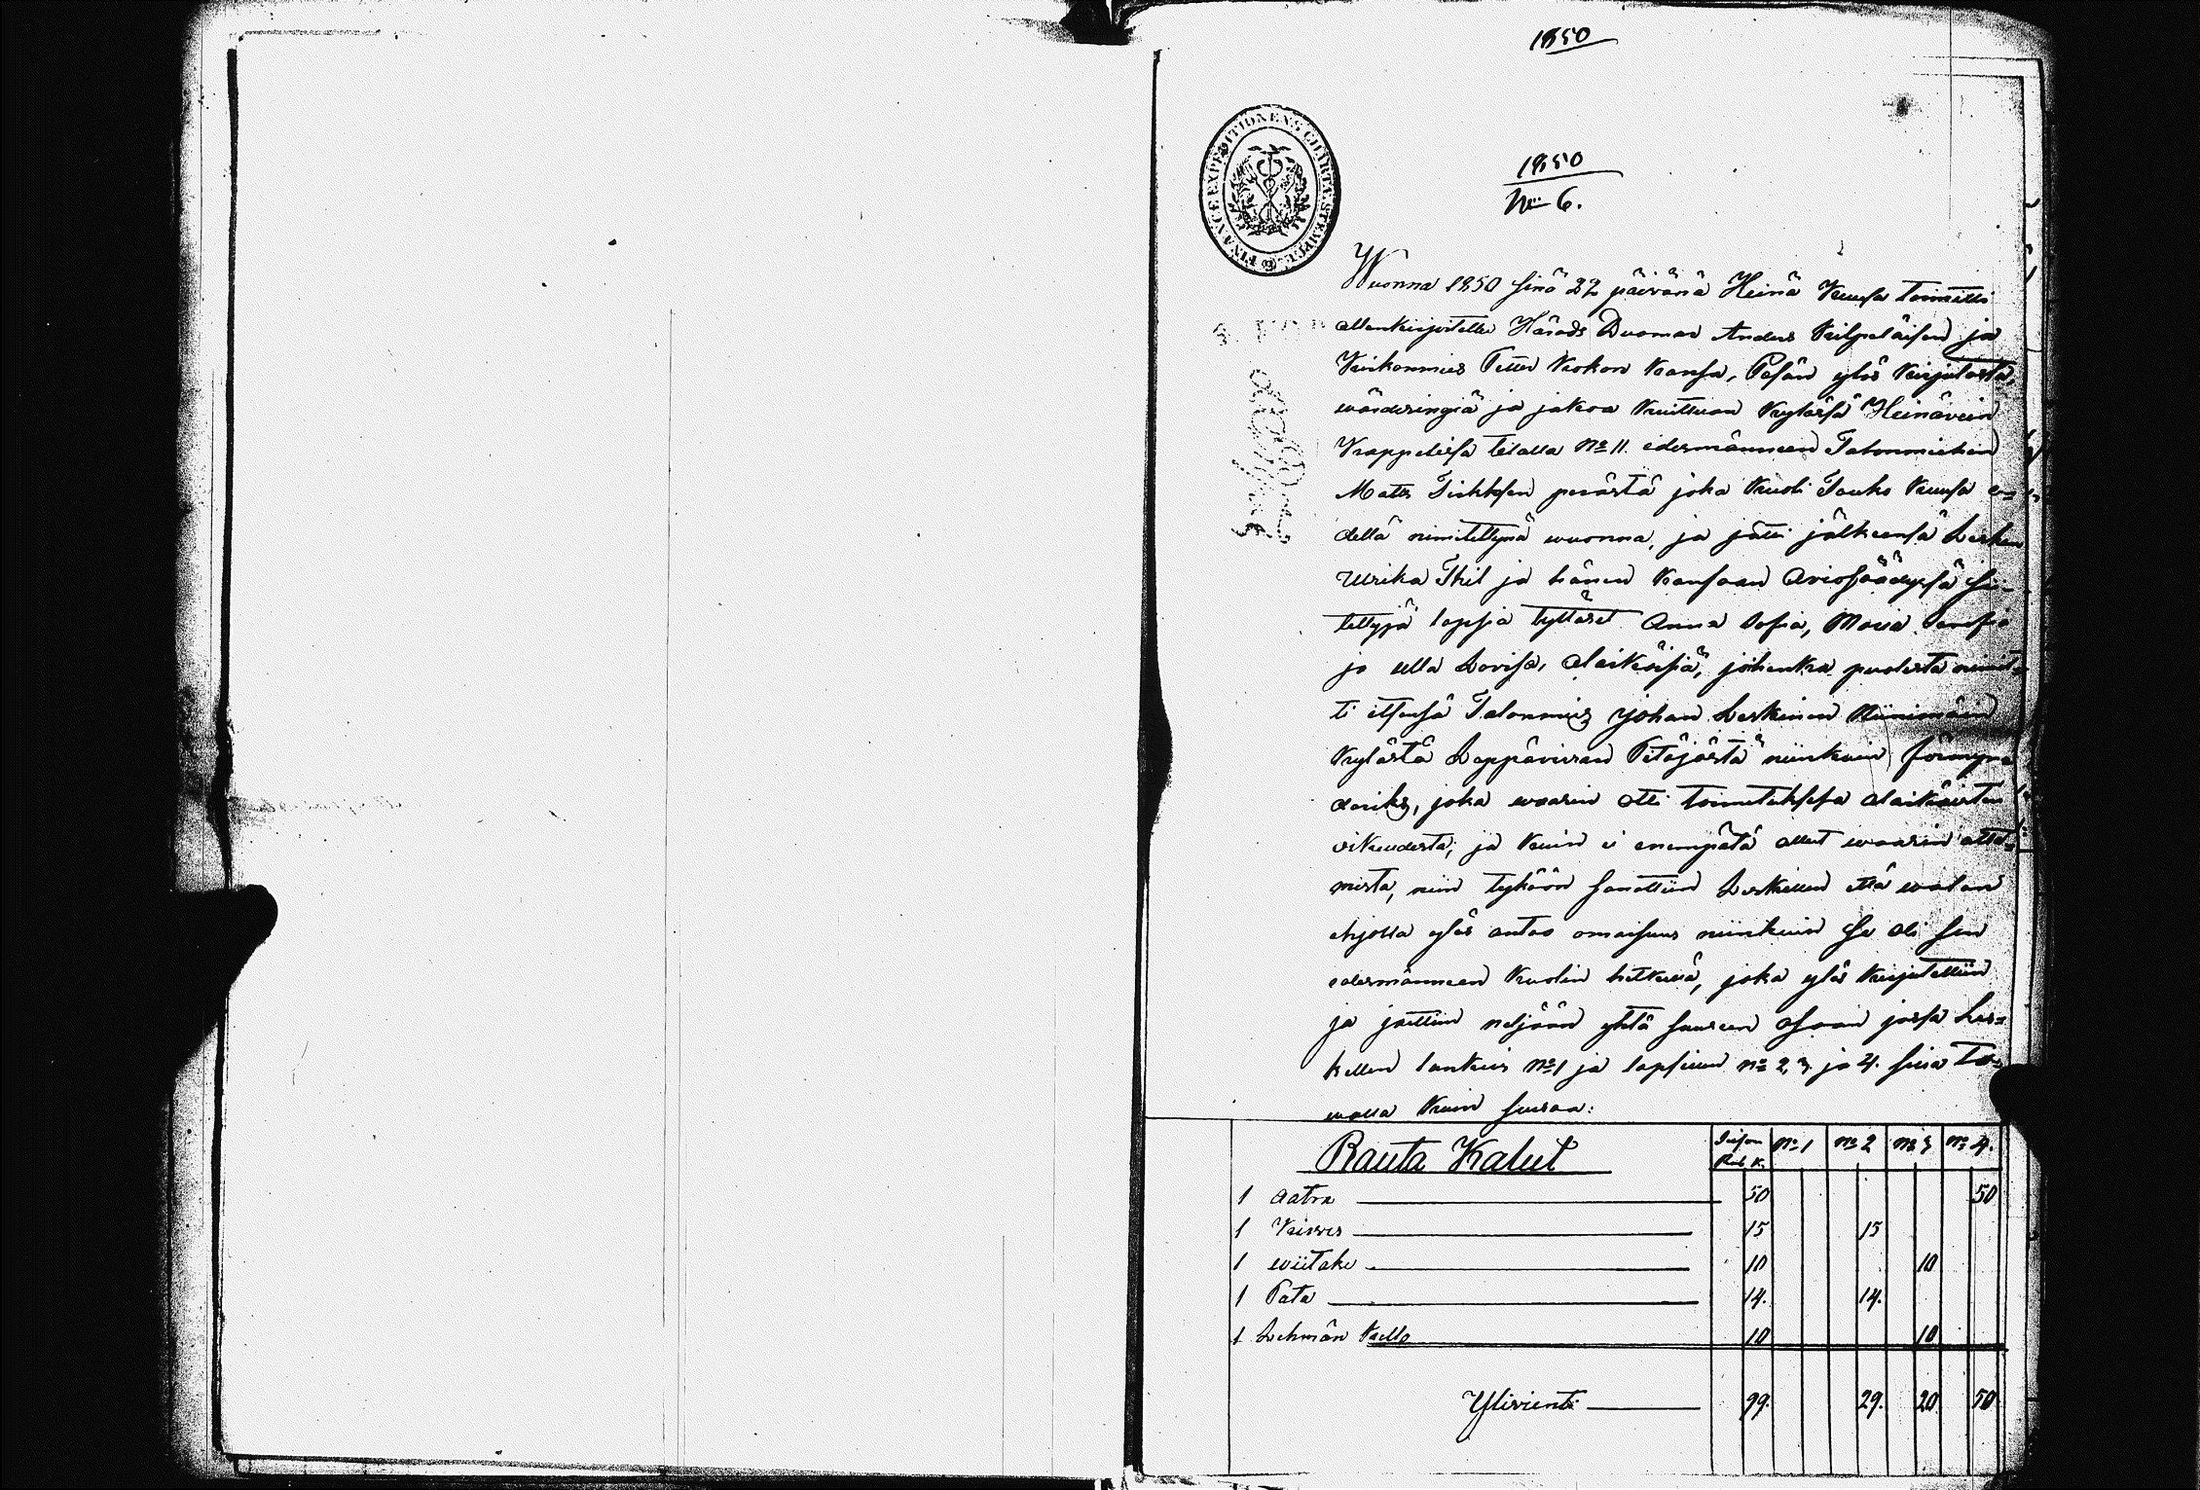 1850
FINANCE EXPEDITIONENS CHARTÆ STEMPEL
1850
No 6.
Wuonna 1850 sinä 22 päivänä Heinä Kuusa toimitti
allenkirjoitettu Härads Duomar Anders Kilpeläisen ja
Kirkonmies Petter Kokon kansa, Pesän ylös kirjutosta,
wärderingiä ja jakoa Kuittuan kyläsä Heinävein
Kappelissa tilalla No 11. edesmänneen Talonmiehen
Mats Tirkkosen perästä joka kuoli Touko kuusa e=
dellä nimitettynä wuonna, ja jätti jälkeensä Lesken
Ulrika Thil ja hänen kansaan Aviosäädysä sii-
tettyjä lapsia tyttäret Anna Sofia, Maria
ja Ulla Lovisa, alaikäisiä, joihenka puolesta nimit=
ti itsensä Talonmies Johan Leskinen Niinimäen
kylästä Leppävirran Pitäjästä niinkuin förmyn=
dariks, joka waarin otti toimituksesa alaikäisten
oikeudesta; ja kuin ei enempätä ollut waarin otta=
mista, niin tyköön sanottiin Leskellen että walan
ehjolla ylös antaa omaisuus niinkuin se oli sen
edesmänneen kuolin hetkellä, joka ylös kirjutettiin
ja jaettiin neljään yhtä suureen osaan josa Les=
kellen lankeis No 1 ja lapsillen No 2, 3 ja 4. siinä ta=
walla kuin seuraa:
Rauta Kalut No 1 No 2 No 3 No 4.
Rub K.
1 Aatra 50 50
1 Kirves 15 15
1 wiitake 10 10
1 Pata 14. 14.
1 Lehmän kello 10 10
Ylivienti 99. 29. 20 50